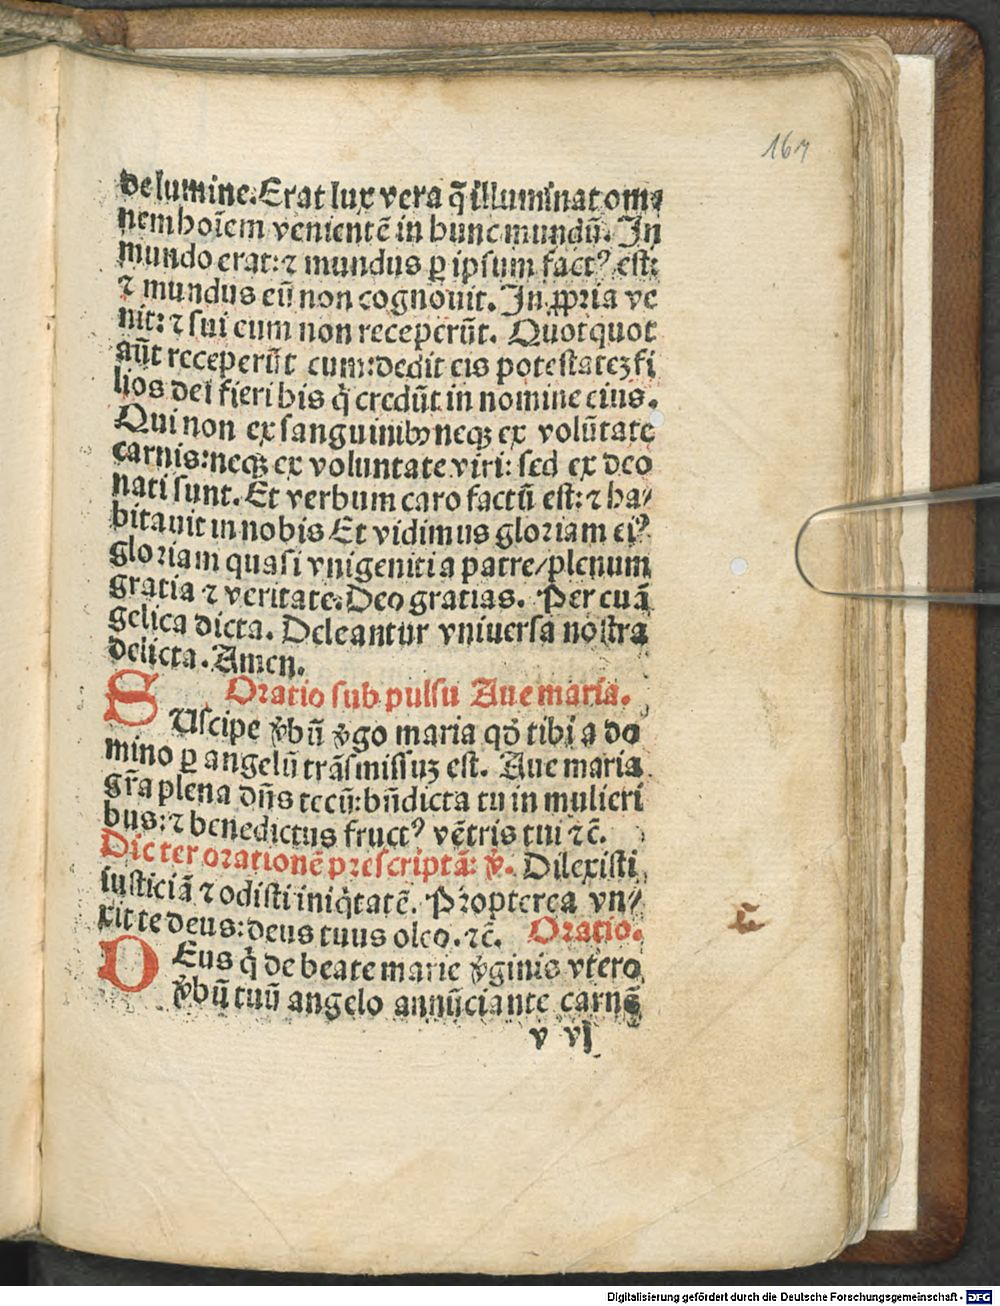 167
de lumine. Erat lux vera q̄ illuminat om⸗
nem hoīem venientē in hunc mundū. In
mundo erat: ⁊ mundus ꝑ ipsum factꝰ est:
⁊ mundus eū non cognouit. In ꝓpria ve
nit: ⁊ sui eum non receperūt. Quotquot
aūt receperūt eum: dedit eis potestatez fi
lios dei fieri his q̇ credūt in nomine eius.
Qui non ex sanguinibꝰ neqꝫ ex volūtate
carnis: neqꝫ ex voluntate viri: sed ex deo
nati sunt. Et verbum caro factū est: ⁊ ha/
bitauit in nobis Et vidimus gloriam eiꝰ
gloriam quasi vnigeniti a patre/plenum
gratia ⁊ veritate. Deo gratias. Per euā
gelica dicta. Deleantur vniuersa nostra
delicta. Amen.
Oratio sub pulsu Aue maria.
SUscipe v̄bū v̄go maria qd̄ tibi a do
mino ꝑ angelū trāsmissuꝫ est. Aue maria
gr̄a plena dn̄s tecū: bn̄dicta tu in mulieri
bus: ⁊ benedictus fructꝰ vētris tui ⁊c̄.
Dic ter orationē prescriptā: v̄. Dilexisti
iusticiā ⁊ odisti iniq̇tatē. Propterea vn/
xit te deus: deus tuus oleo. ⁊c̄. Oratio.
DEus q̇ de beate marie v̄ginis vtero
v̄bū tuū angelo annūciante carnē
v vj
Digitalisierung gefördert durch die Deutsche Forschungsgemeinschaft - DFG